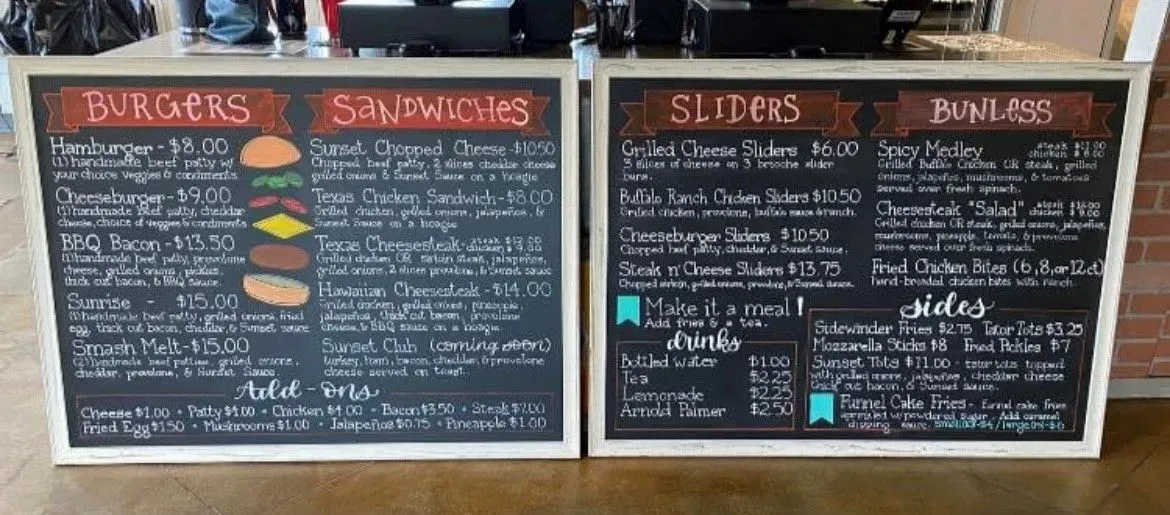 BURGERS
Hamburger - $8.00
(1) handmade beef patty w/
your choice veggies & condiments.
Cheeseburger - $9.00
(1) handmade beef patty, cheddar
cheese, choice of veggies & condiments
BBQ Bacon - $13.50
(1) handmade beef patty, provolone
cheese, grilled onions, pickles,
thick cut bacon, & BBQ sauce.
Sunrise - $15.00
(1) handmade beef patty, grilled onions, fried
egg, thick cut bacon, cheddar, & Sunset sauce
Smash Melt - $15.00
(2) handmade beef patties, grilled onions,
cheddar, provolone, & Sunset Sauce.
SANDWICHES
Sunset Chopped Cheese - $10.50
Chopped beef patty, 2 slices cheddar cheese
grilled onions & Sunset Sauce on a hoagie
Texas Chicken Sandwich - $8.00
Grilled chicken, grilled onions, jalapeños, &
Sunset Sauce on a hoagie
Texas Cheesesteak - steak
chicken
Grilled chicken OR sirloin steak, jalapeños,
grilled onions, 2 slices provolone, & Sunset sauce
Hawaiian Cheesesteak - $14.00
Grilled chicken, grilled onions, pineapple,
jalapeños, thick cut bacon, provolone
cheese, & BBQ sauce on a hoagie.
Sunset Club (coming soon)
turkey, ham, bacon, cheddar, & provolone
cheese served on toast.
Add-ons
Cheese $1.00 • Patty $4.00 • Chicken $4.00 - Bacon $3.50 • Steak $7.00
Fried Egg $1.50 • Mushrooms $1.00 • Jalapeños $0.75 • Pineapple $1.00
SLIDERS
Grilled Cheese Sliders $6.00
3 slices of cheese on 3 brioche slider
buns.
Buffalo Ranch Chicken Sliders $10.50
Grilled chicken, provolone, buffalo sauce & ranch.
Cheeseburger Sliders $10.50
Chopped beef patty, cheddar, & Sunset sauce.
Steak n' Cheese Sliders $13.75
Chopped sirloin, grilled onions, provolone, & Sunset sauce.
Make it a meal!
Add fries & a tea.
drinks
Bottled water $1.00
Tea $2.25
Lemonade $2.25
Arnold Palmer $2.50
BUNLESS
Spicy Medley steak
chicken
Grilled Buffalo Chicken OR steak, grilled
onions, jalapeños, mushrooms, & tomatoes
served over fresh spinach.
Cheesesteak "Salad" steak
chicken
Grilled chicken OR steak, grilled onions, jalapeños,
mushrooms, pineapple, tomato, & provolone
cheese served over fresh spinach.
Fried Chicken Bites (6, 8, or 12 ct)
hand-breaded chicken bites with ranch.
sides
Sidewinder Fries $2.75 Tator Tots $3.25
Mozzarella Sticks $8 Fried Pickles $7
Sunset Tots $11.00 - tator tots topped
with grilled onions, jalapeños, cheddar cheese
thick cut bacon, & Sunset sauce.
Funnel Cake Fries - funnel cake fries
sprinkled w/ powdered sugar. Add caramel
dipping sauce.